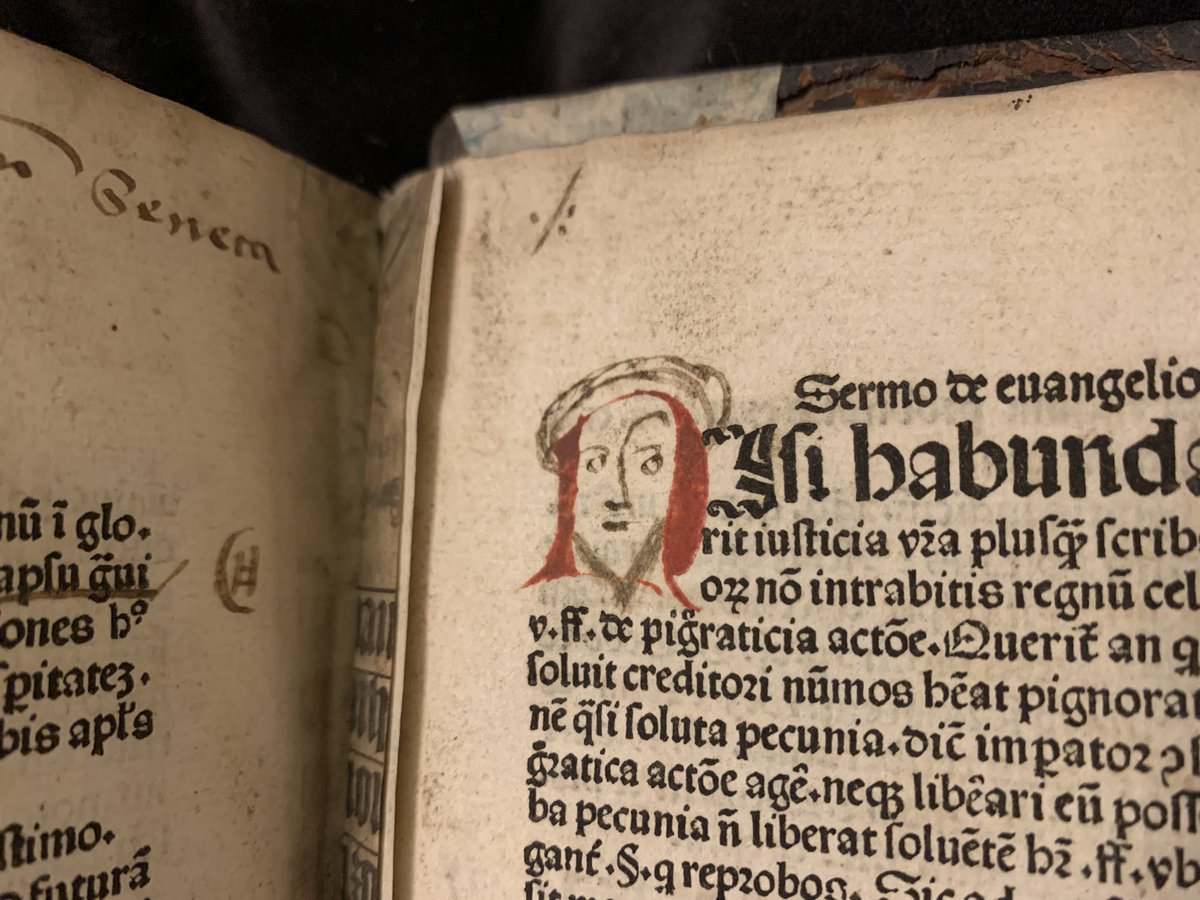 Senem
nū ī glo.
apsu g̃ui
ones hꝰ
spitatez.
bis apl̃s
stimo.
futurā
Sermo de euangelio
Nisi habunda
rit iusticia vr̃a plusꝙ̃ scrib
oꝝ nō intrabitis regnū cel
v. ff. de pig̃raticia actōe. Querit̃ an q
soluit creditori nūmos hēat pignorat
nē q̃si soluta pecunia. dic̄ impator ꝯs
g̃ratica actōe agē. neqꝫ libēari eū poss
ba pecunia n̄ liberat soluētē hr̄. ff. vb
gant̃. §. q reprobos. Sic ad